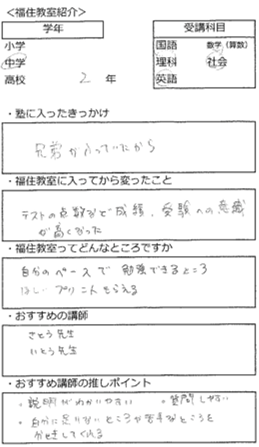 <福住教室紹介>
学年
小学
中学
高校 2 年
受講科目
国語 数学(算数)
理科 社会
英語
・塾に入ったきっかけ
兄弟が入っていたから
・福住教室に入ってから変ったこと
テストの点数など成績、受験への意識
が高くなった
・福住教室ってどんなところですか
自分のペースで勉強できるところ
ほしいプリントもらえる
・おすすめの講師
さとう先生
いとう先生
・おすすめ講師の推しポイント
・説明がわかりやすい ・質問しやすい
・自分に足りないところが苦手なところを
分せきしてくれる